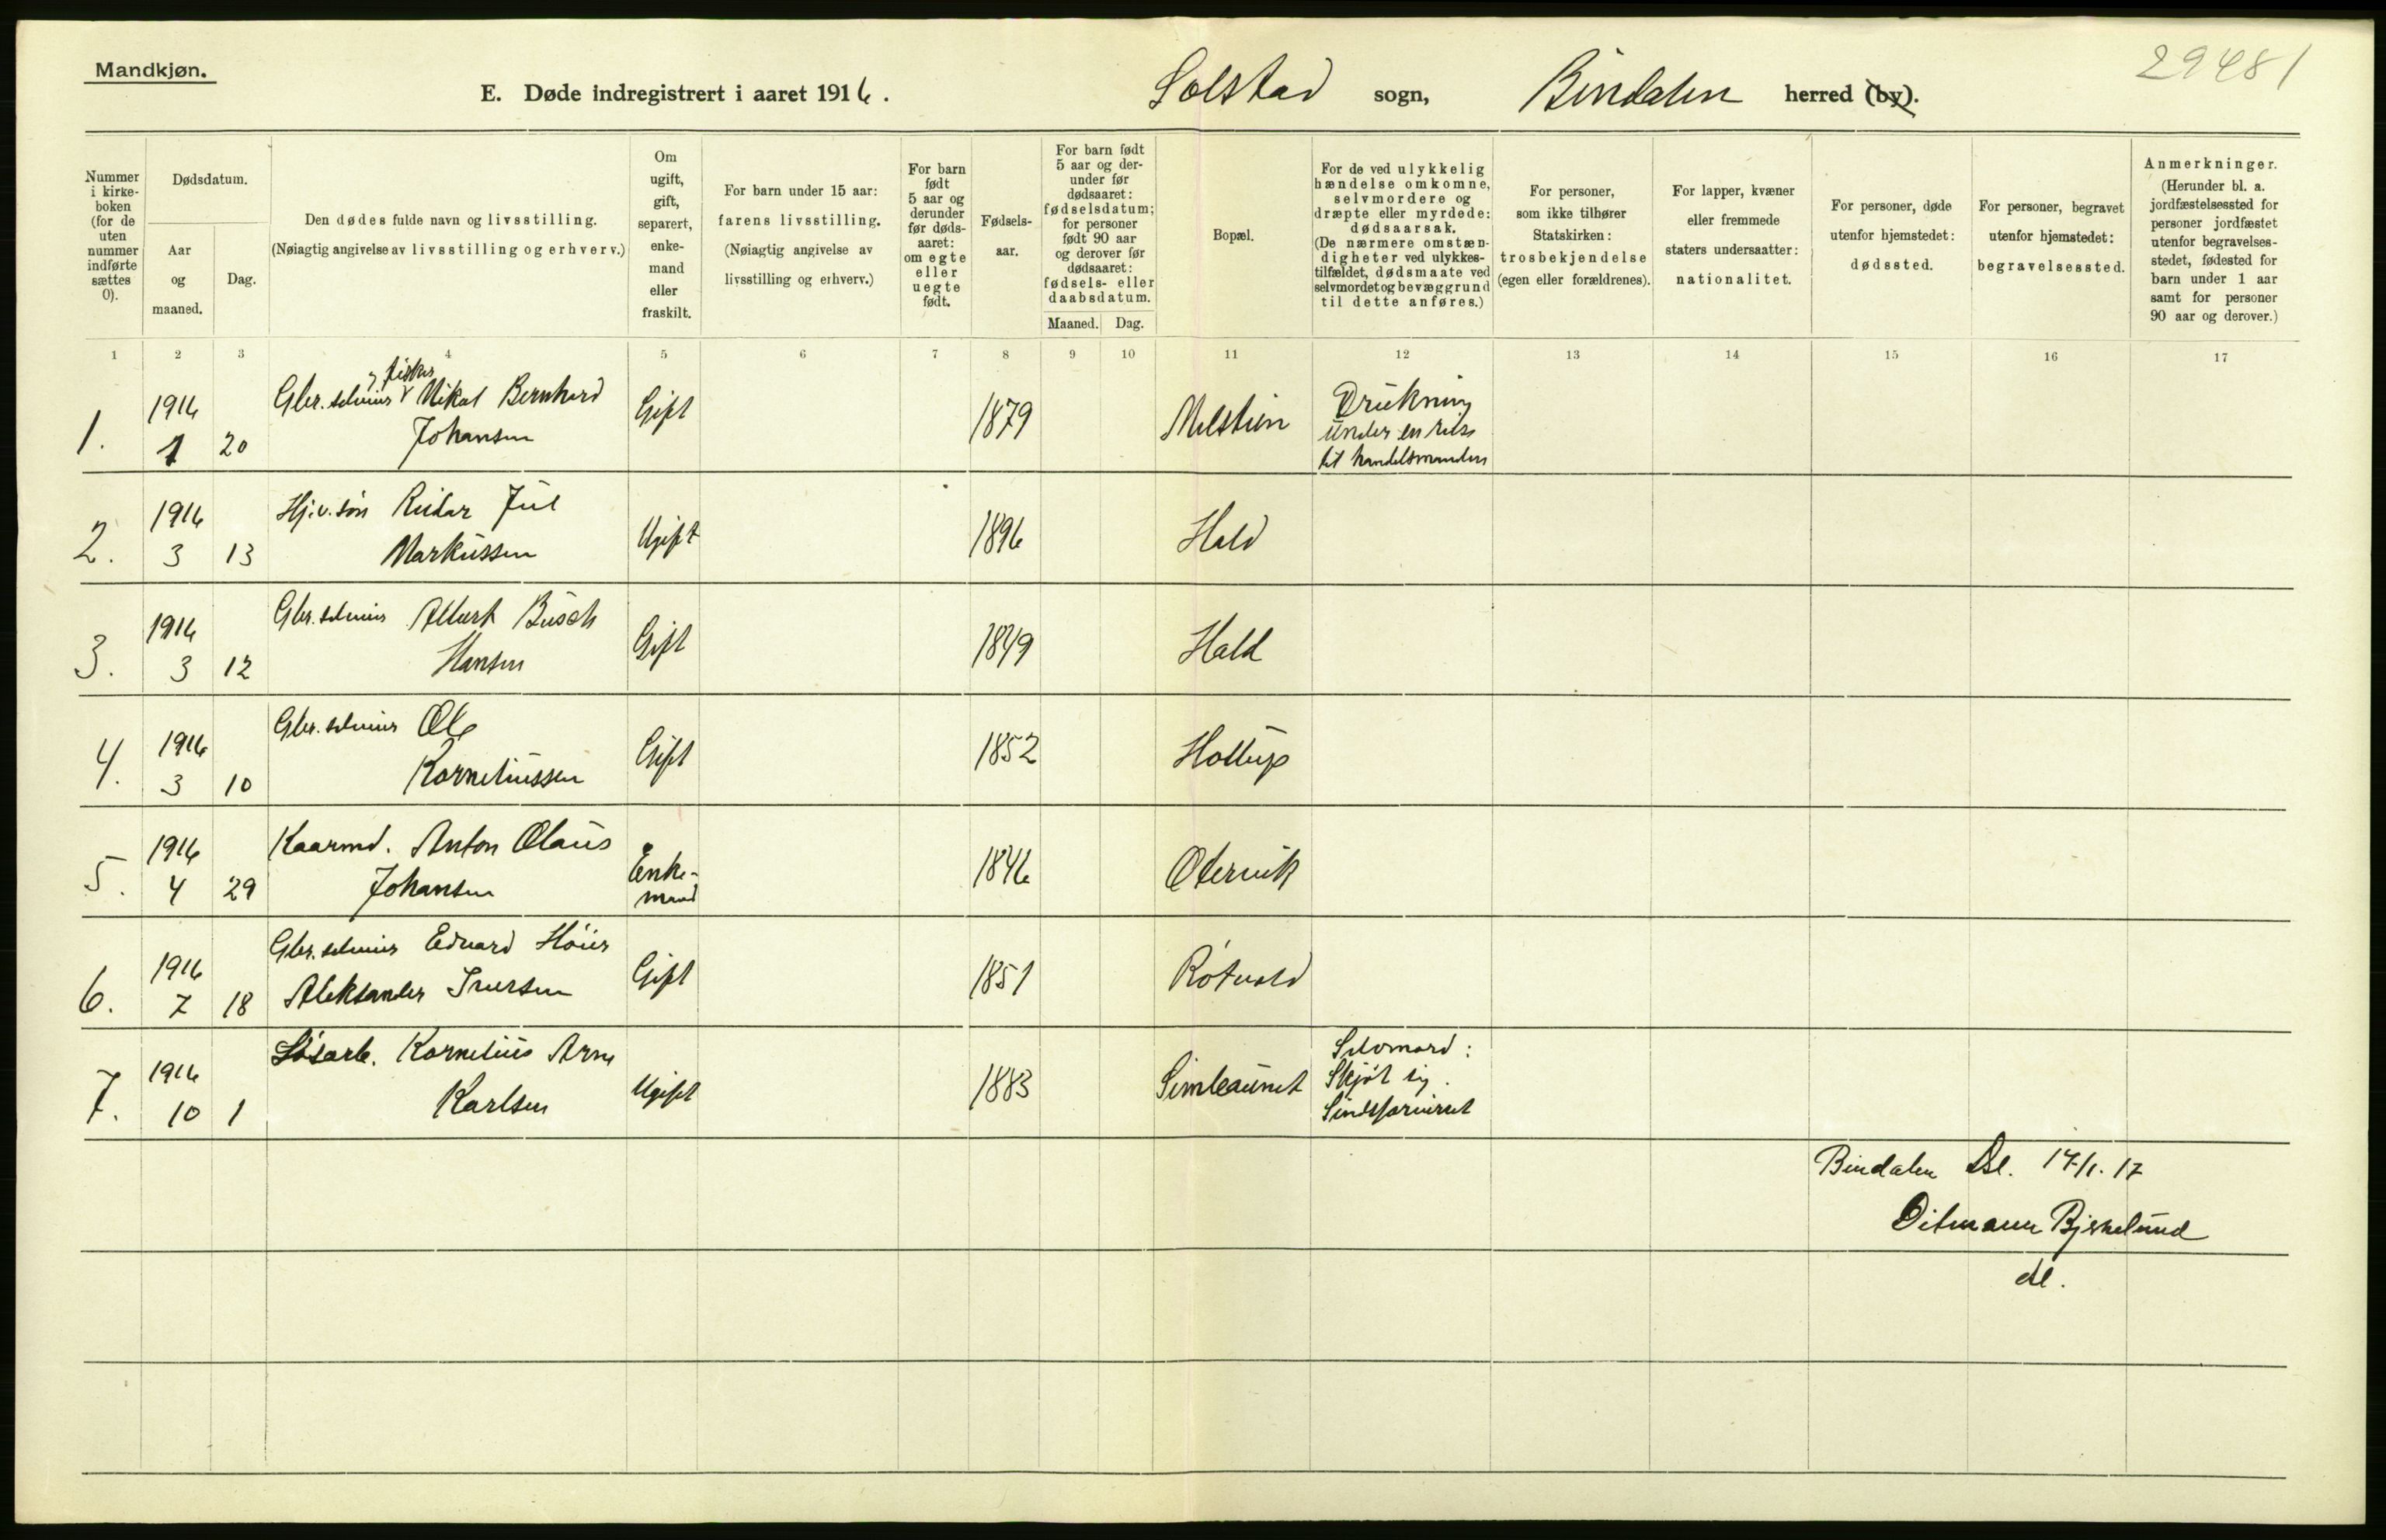 Mandkjøn.
29481
E. Døde indregistrert i aaret 1916. Solstad sogn, Bindalen herred (by).
Nummer i kirke- boken (for de uten nummer indførte sættes 0).
Dødsdatum.
Aar og maaned.
Dag.
Den dødes fulde navn og livsstilling.
(Nøiagtig angivelse av livsstilling og erhverv.)
Om ugift, gift, separert, enke- mand eller fraskilt.
For barn under 15 aar:
farens livsstilling.
(Nøiagtig angivelse av
livsstilling og erhverv.)
For barn født 5 aar og derunder før døds- aaret: om egte eller uegte født.
Fødsels- aar.
For barn født 5 aar og der- under før dødsaaret: fødselsdatum; for personer født 90 aar og derover før dødsaaret: fødsels- eller daabsdatum.
Maaned. Dag.
Bopæl.
For de ved ulykkelig hændelse omkomne, selvmordere og dræpte eller myrdede: dødsaarsak.
(De nærmere omstæn- digheter ved ulykkes- tilfældet, dødsmaate ved selvmordet og bevæggrund til dette anføres.)
For personer, som ikke tilhører Statskirken: trosbekjendelse (egen eller forældrenes).
For lapper, kvæner eller fremmede staters undersaatter: nationalitet.
For personer, døde utenfor hjemstedet: dødssted.
For personer, begravet utenfor hjemstedet: begravelsessted.
Anmerkninger.
(Herunder bl. a. jordfæstelsessted for personer jordfæstet utenfor begravelses- stedet, fødested for barn under 1 aar samt for personer 90 aar og derover.)
1 2 3 4 5 6 7 8 9 10 11 12 13 14 15 16 17
1. 1916 1 20 Gbr. Bernhard Johansen Gift 1879 Drukning under en reise til handelsmanden
2. 1916 3 13 Hj.v. søn Reidar Jul Markussen Ugift 1896 Hald
3. 1916 3 12 Gbr. Albert Busch Hansen Gift 1849 Hald
4. 1916 3 10 Gbr. Ole Korneliussen Gift 1852
5. 1916 4 29 Kaarmd. Anton Olaus Johansen Enke- mand 1846 Otervik
6. 1916 7 18 Gbr. Edvard Høier Aleksander Iversen Gift 1851
7. 1916 10 1 Løsarb. Kornelius Arne Karlsen Ugift 1883 Simleaunet Selvmord: Skjøt sig. Sindsforvirret
Bindalen 17/1. 17
Ditmann Bjerkelund